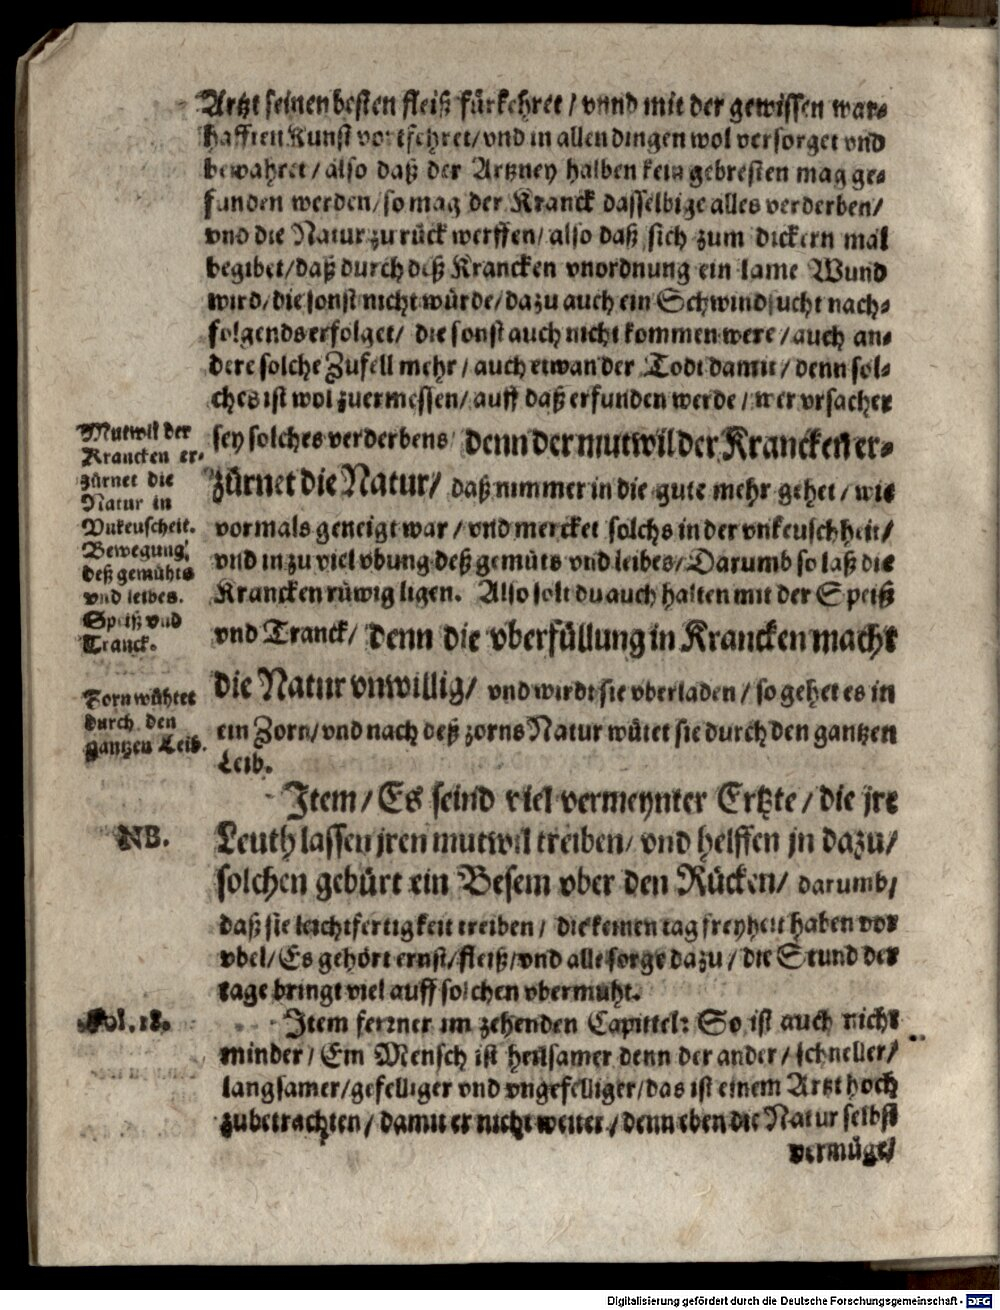 Artzt seinen besten fleiß fürkehret / vnnd mit der gewissen war-
hafften Kunst vortfehret / vnd in allen dingen wol versorget vnd
bewahret / also daß der Artzney halben kein gebresten mag ge-
funden werden / so mag der Kranck dasselbige alles verderben /
vnd die Natur zu rück werffen / also daß sich zum dickern mal
begibet / daß durch deß Krancken vnordnung ein lame Wund
wird / die sonst nicht würde / dazu auch ein Schwindsucht nach-
folgends erfolget / die sonst auch nicht kommen were / auch an-
dere solche Zufell mehr / auch etwan der Todt damit / denn sol-
ches ist wol zuermessen / auff daß erfunden werde / wer vrsacher
sey solches verderbens denn der mutwil der Krancken er-
zürnet die Natur / daß nimmer in die gute mehr gehet / wie
vormals geneigt war / vnd mercket solchs in der vnkeuschheit /
vnd in zu viel vbung deß gemüts vnd leibes / Darumb so laß die
Krancken rüwig ligen. Also solt du auch halten mit der Speiß
vnd Tranck / denn die vberfüllung in Krancken macht
die Natur vnwillig / vnd wirdt sie vberladen / so gehet es in
ein Zorn / vnd nach deß zorns Natur wütet sie durch den gantzen
Leib.
Mutwil der
Krancken er-
zürnet die
Natur in
Vnkeuscheit.
Bewegung
deß gemühts
vnd leibes.
Speiß vnd
Tranck.
Zorn wühtet
durch den
gantzen Leib.
Item / Es seind viel vermeynter Ertzte / die jre
Leuth lassen jren mutwil treiben / vnd helffen jn dazu /
solchen gebürt ein Besem vber den Rücken / darumb /
daß sie leichtfertigkeit treiben / die keinen tag freyheit haben vor
vbel / Es gehört ernst / fleiß / vnd alle sorge dazu / die Stund der
tage bringt viel auff solchen vbermuht.
NB.
Item ferrner im zehenden Capittel: So ist auch nicht
minder / Ein Mensch ist heilsamer denn der ander / schneller /
langsamer / gefelliger vnd vngefelliger / das ist einem Artzt hoch
zubetrachten / damit er nicht weiter / denn eben die Natur selbst
vermüge /
Fol. 18.
Digitalisierung gefördert durch die Deutsche Forschungsgemeinschaft - DFG